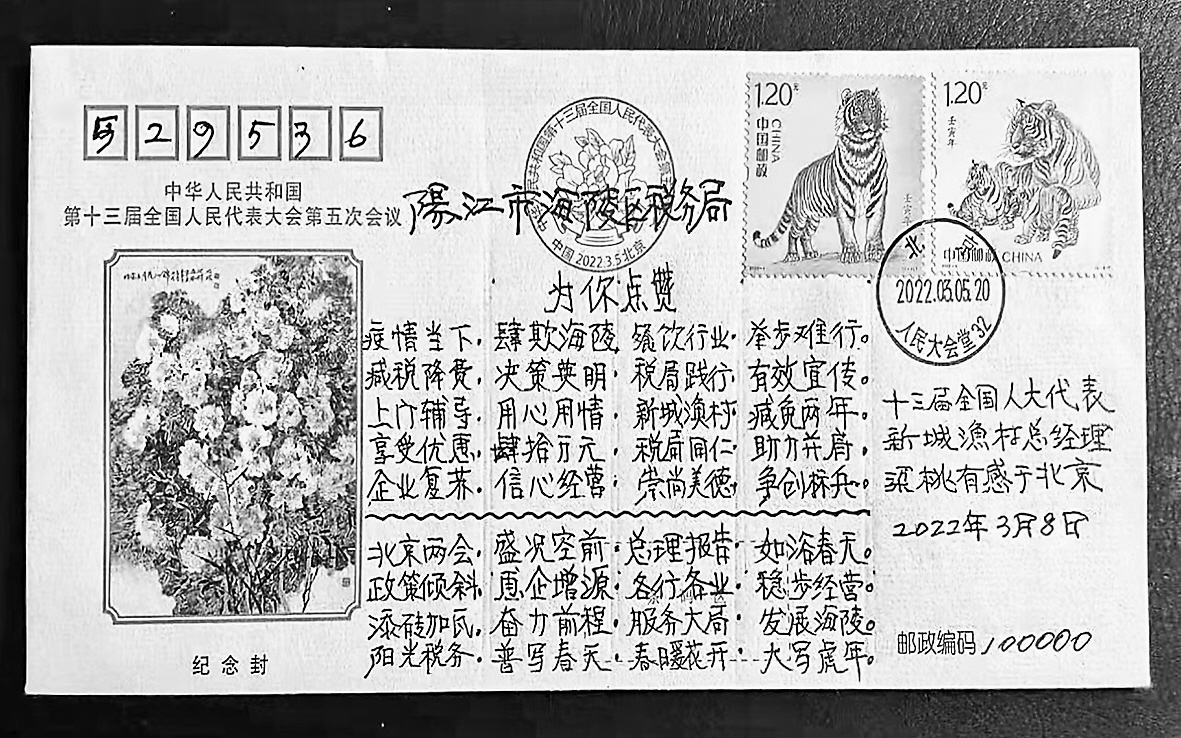 529536
中华人民共和国
第十三届全国人民代表大会第五次会议
纪念封
中华人民共和国第十三届全国人民代表大会第五次会议
中国 2022.3.5 北京
1.20元
CHINA
中国邮政
壬寅年
1.20元
壬寅年
中国邮政 CHINA
北京
2022.03.05.20
人民大会堂32
陽江市海陵区税务局
为你点赞
疫情当下，肆欺海陵，餐饮行业，举步难行。
减税降费，决策英明，税局践行，有效宣传。
上门辅导，用心用情，新城渔村，减免两年。
享受优惠，肆拾万元，税局同仁，助力并肩，
企业复苏，信心经营，崇尚美德，争创标兵。
北京两会，盛况空前，总理报告，如浴春天。
政策倾斜，惠企增源，各行各业，稳步经营。
添砖加瓦，奋力前程，服务大局，发展海陵。
阳光税务，普写春天，春暖花开，大写虎年。
十三届全国人大代表
新城渔村总经理
梁桃有感于北京
2022年3月8日
邮政编码 100000